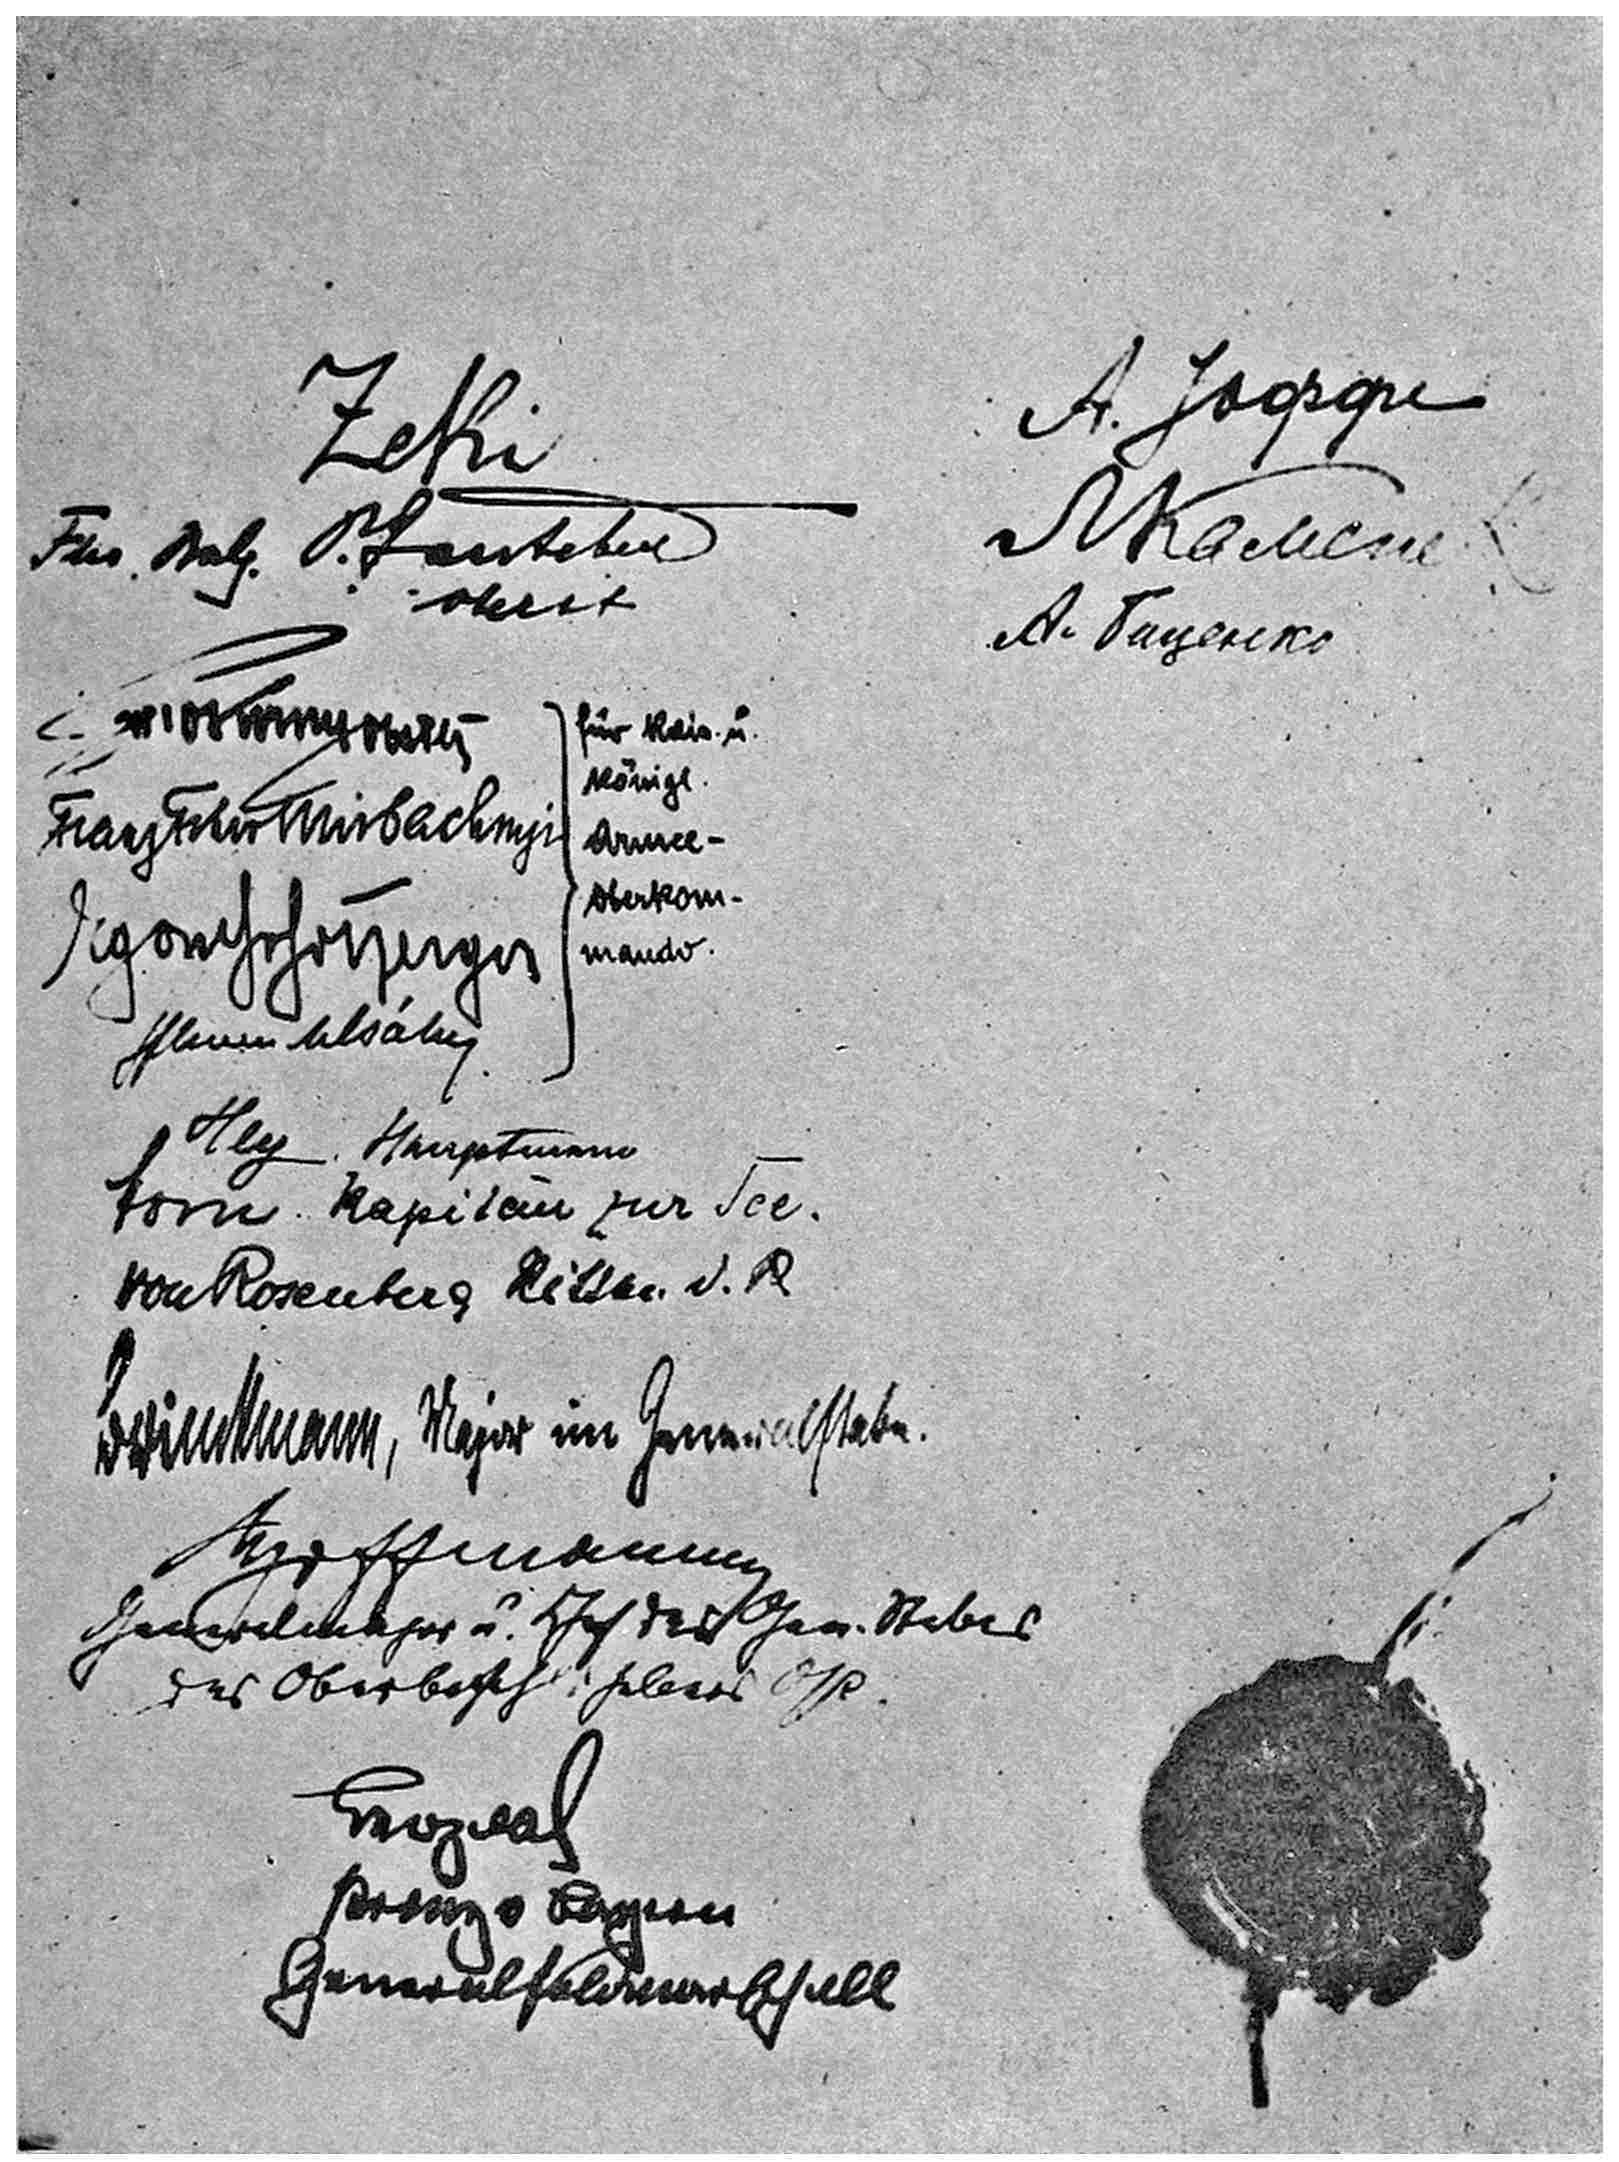 Zeki
Für Bulg. P. Gantchew
Oberst
für Kais. u.
Königl.
Armee-
Oberkom-
mando.
Franz Frhr Mirbach
Hey. Hauptmann
Horn. Kapitän zur See.
von Rosenberg Rittm. d. R
Brinckmann, Major im Generalstabe.
Hoffmann
Generalmajor u. Chef des Gen. Stabes
des Oberbefehlshabers Ost.
Leopold
Prinz v Bayern
Generalfeldmarschall
А. Іоффе
Л Камене
А. Биценко